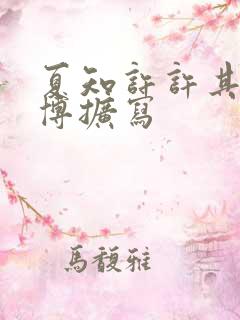 夏知許許其
博擴寫
馬馥雅